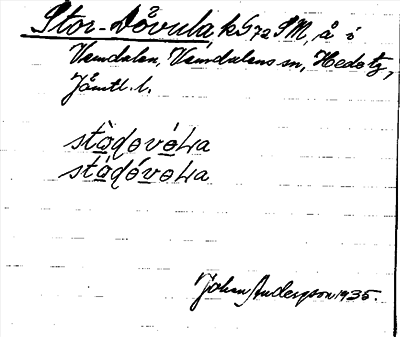 Stor-Dövula, k G72 SM, å i
Vemdalen, Vemdalens sn, Hede tg,
Jämtl. l.
stòdovóLa
stádóvoLa
Johan Anderson 1935.